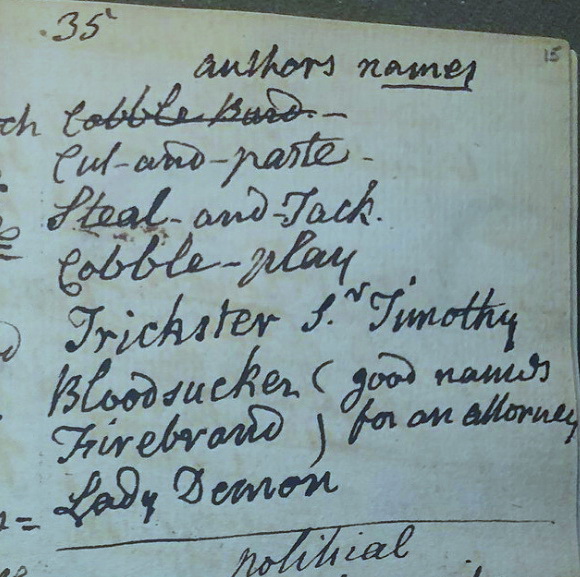 35
15
authors names
Cobble Bard -
Cut-and-paste -
Steal-and-Tack.
Cobble-play
Trickster S.r Timothy
Bloodsucker ( good names
Firebrand ) for an attorney
Lady Demon
political